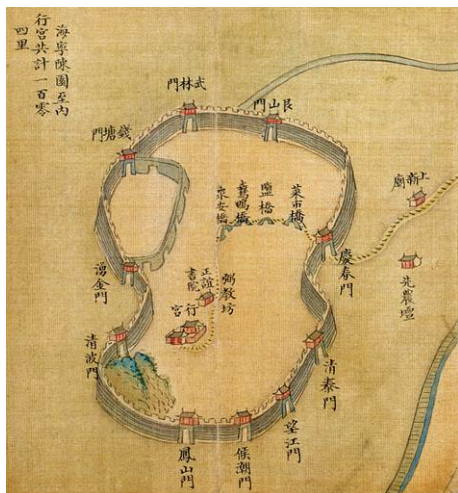 海寧陳園至內
行宮共計一百零
四里
武林門
艮山門
錢塘門
上新廟
菜市橋
鹽橋
鵞鴨橋
衆安橋
慶春門
先農壇
湧金門
弼教坊
正誼
書院
行宮
清波門
清泰門
望江門
候潮門
鳳山門